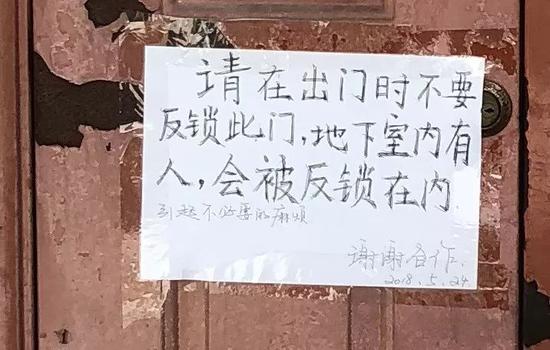 请在出门时不要
反锁此门,地下室内有
人,会被反锁在内.
引起不必要的麻烦
谢谢合作.
2018.5.24